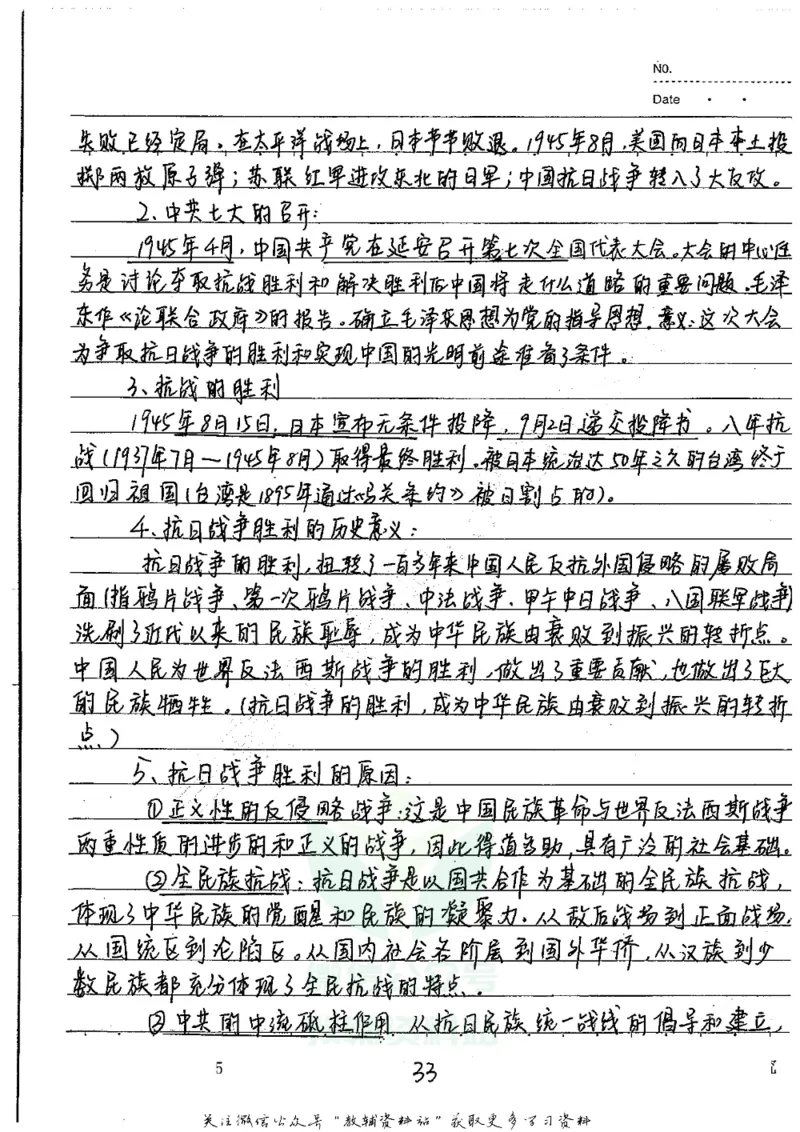 No.
Date
失败已经定局。在太平洋战场上，日本节节败退。1945年8月，美国向日本本土投
掷两放原子弹；苏联红军进攻东北的日军；中国抗日战争转入了大反攻。
2、中共七大的召开：
1945年4月，中国共产党在延安召开第七次全国代表大会。大会的中心任
务是讨论夺取抗战胜利和解决胜利后中国将走什么道路的重要问题。毛泽
东作《论联合政府》的报告。确立毛泽东思想为党的指导思想。意义：这次大会
为争取抗日战争的胜利和实现中国的光明前途准备了条件。
3、抗战的胜利
1945年8月15日，日本宣布无条件投降，9月2日递交投降书。八年抗
战（1937年7月—1945年8月）取得最终胜利。被日本统治达50年之久的台湾终于
回归祖国（台湾是1895年通过《马关条约》被日割占的）。
4、抗日战争胜利的历史意义：
抗日战争的胜利，扭转了一百多年来中国人民反抗外国侵略的屡败局
面（指鸦片战争、第一次鸦片战争、中法战争、甲午中日战争、八国联军战争）
洗刷了近代以来的民族耻辱，成为中华民族由衰败到振兴的转折点。
中国人民为世界反法西斯战争的胜利，做出了重要贡献，也做出了巨大
的民族牺牲。（抗日战争的胜利，成为中华民族由衰败到振兴的转折
点）
5、抗日战争胜利的原因：
①正义性的反侵略战争：这是中国民族革命与世界反法西斯战争
两重性质的进步的和正义的战争，因此得道多助，具有广泛的社会基础。
②全民族抗战：抗日战争是以国共合作为基础的全民族抗战，
体现了中华民族的觉醒和民族的凝聚力。从敌后战场到正面战场，
从国统区到沦陷区。从国内社会各阶层到国外华侨，从汉族到少
数民族都充分体现了全民抗战的特点。
③中共的中流砥柱作用 从抗日民族统一战线的倡导和建立，
5
33
关注微信公众号"教辅资料站"获取更多学习资料